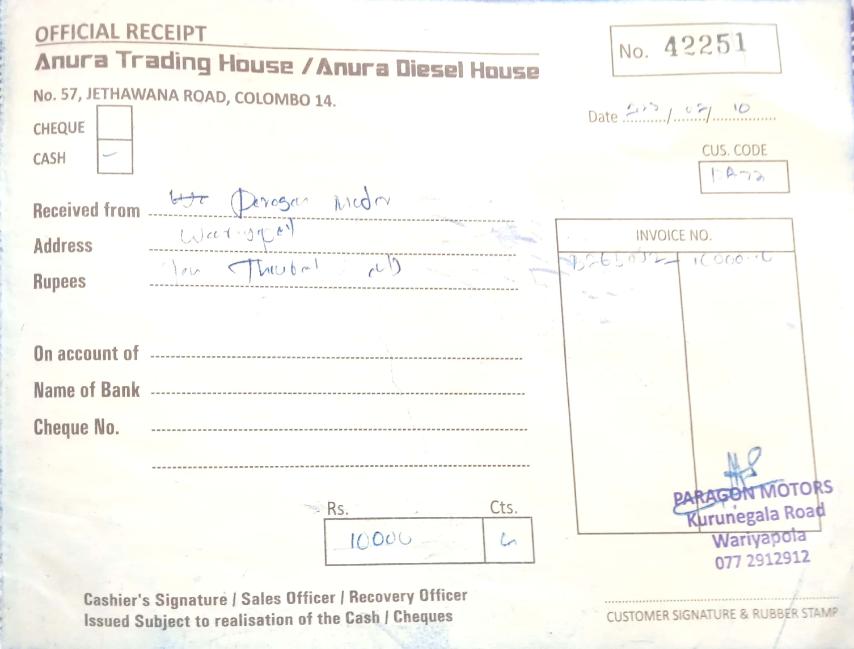 OFFICIAL RECEIPT
Anura Trading House / Anura Diesel House
No. 42251
No. 57, JETHAWANA ROAD, COLOMBO 14.
CHEQUE
CASH
Date / 02 / 10
CUS. CODE
Received from
Address
Rupees Ten
INVOICE NO.
10000
On account of
Name of Bank
Cheque No.
Rs. Cts.
10000
PARAGON MOTORS
Kurunegala Road
Wariyapola
077 2912912
Cashier's Signature / Sales Officer / Recovery Officer
Issued Subject to realisation of the Cash / Cheques
CUSTOMER SIGNATURE & RUBBER STAMP